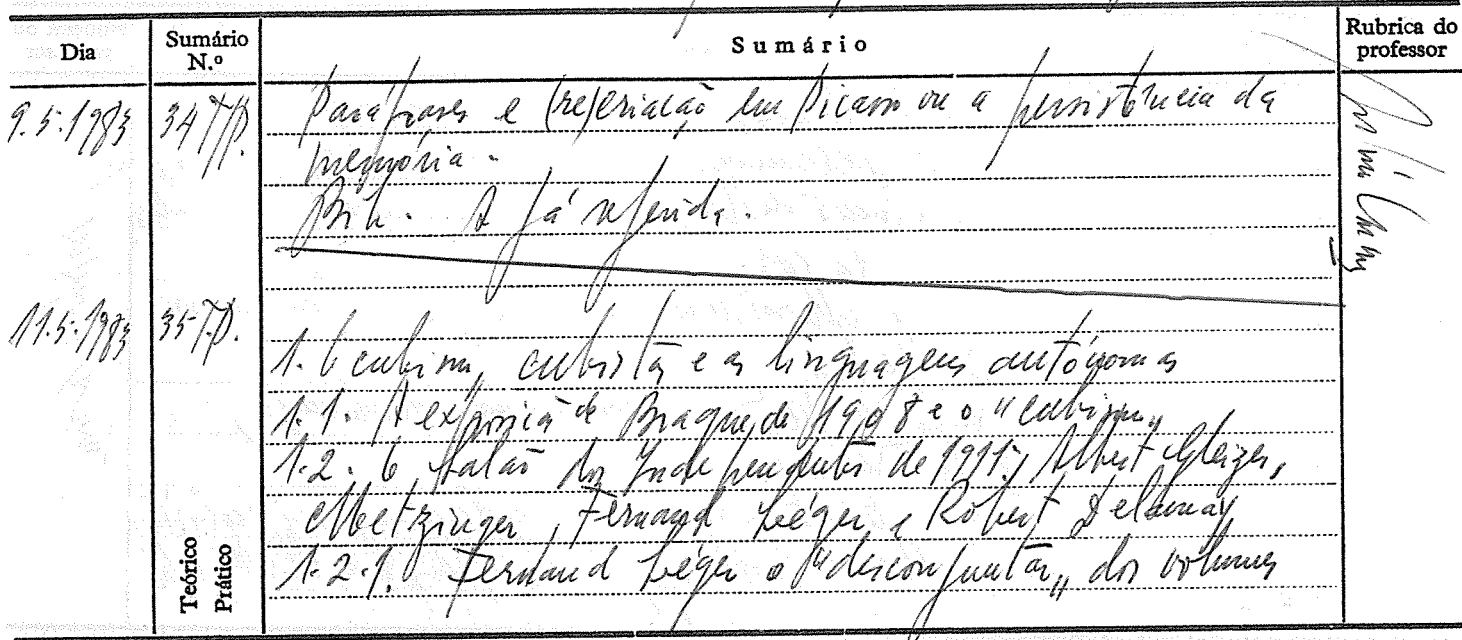 Dia Sumário N.º Sumário Rubrica do professor
9.5.1983 34 T.P. Paráfrases e (re)criação em Picasso ou a persistência da
memória.
Bib. A já referida.
11.5.1983 35 T.P.
1. O cubismo, cubistas e as linguagens autónomas
1.1. A exposição de Braque de 1908 e o "cubismo"
1.2. O Salão dos Independentes de 1911: Albert Gleizes,
Metzinger, Fernand Léger e Robert Delaunay
1.2.1. Fernand Léger o "desconjuntar" dos volumes
Teórico
Prático